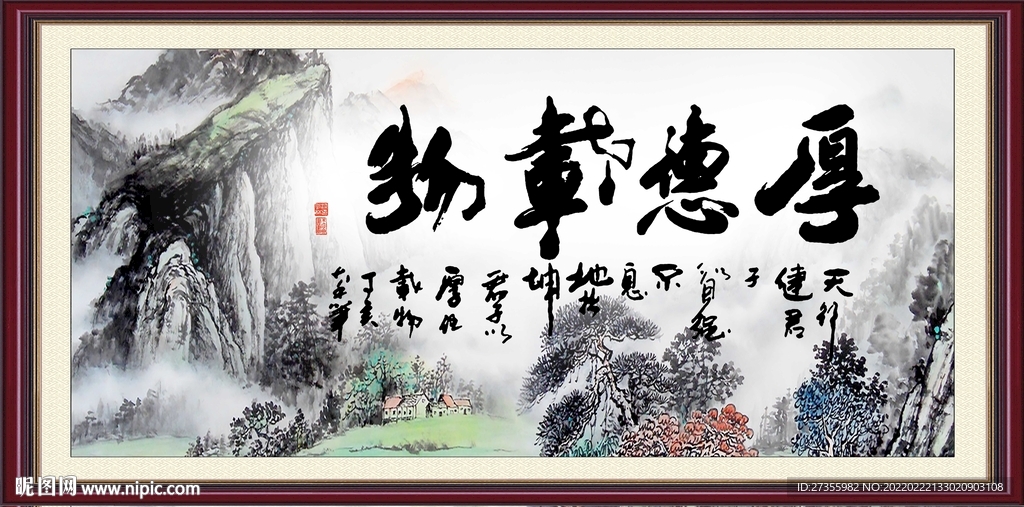 厚德載物
天行
健君
子
以自强
不
息
地势
坤
君子以
厚德
載物
丁亥
昵图网 www.nipic.com
ID:27355982 NO:20220222133020903108